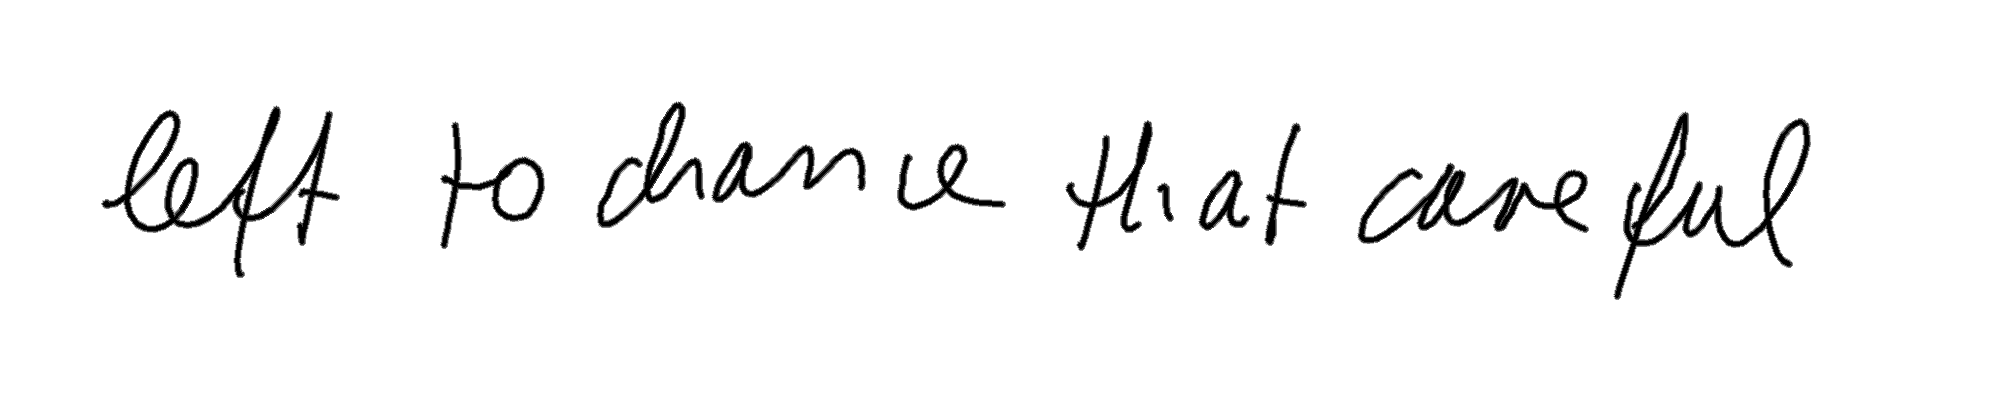 left to chance that careful